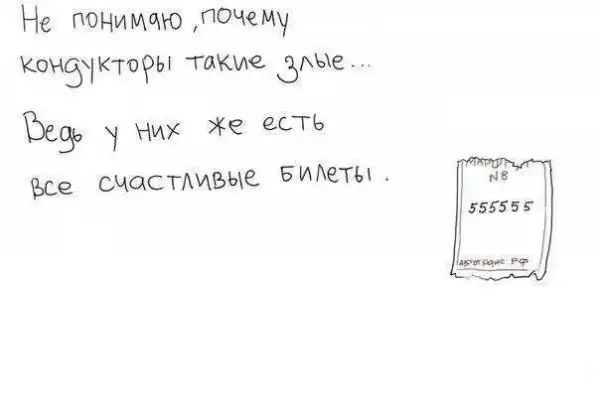 Не понимаю, почему
кондукторы такие злые...
Ведь у них же есть
все счастливые билеты.
МАРШРУТ
N8
555555
АВТОТРАНС РФ